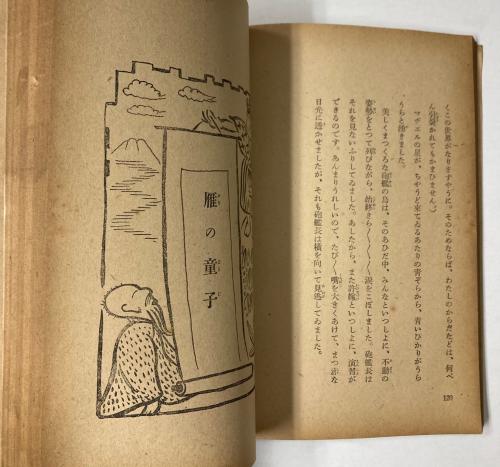 くこの世界がなりますやうに。そのためならば、わたしのからだなどは、何べ
ん引裂かれてもかまひません。）
マヂエルの星が、ちやうど来てゐるあたりの青ぞらから、青いひかりがうら
うらと湧きました。
美しくまつくろな砲艦の烏は、そのあひだ中、みんなといつしよに、不動の
姿勢をとつて列びながら、始終きら〳〵〳〵〳〵涙をこぼしました。砲艦長は
それを見ないふりしてゐました。あしたから、また許嫁といつしよに、演習が
できるのです。あんまりうれしいので、たび〳〵嘴を大きくあけて、まつ赤な
日光に透かせましたが、それも砲艦長は横を向いて見逃してゐました。
120
雁の童子